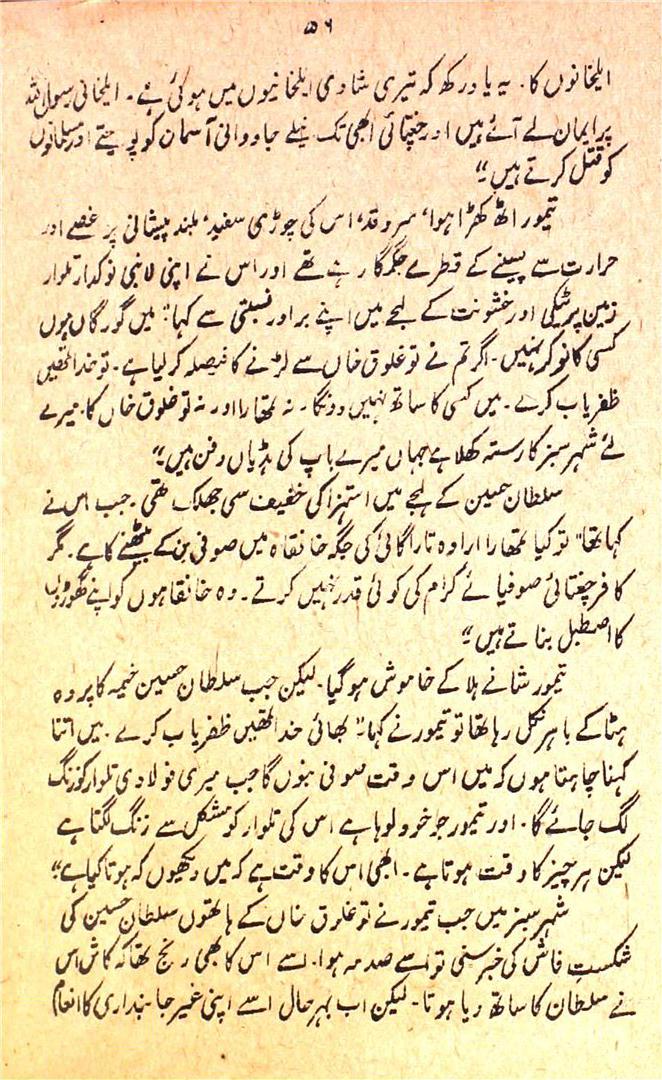 ۵۶
ایلخانوں کا۔ یہ یاد رکھ کہ تیری شادی ایلخانیوں میں ہوئی ہے۔ ایلخانی رسول اللہ
پر ایمان لے آئے ہیں اور چغتائی ابھی تک نیلے جاودانی آسمان کو پوجتے اور مسلمانوں
کو قتل کرتے ہیں“
تیمور اٹھ کھڑا ہوا، سرو قد، اس کی چوڑی سفید، بلند پیشانی پر غصے اور
حرارت سے پسینے کے قطرے جگمگا رہے تھے اور اس نے اپنی لانبی نوکدار تلوار
زمین پر ٹیکی اور خشونت کے لہجے میں اپنے برادر نسبتی سے کہا ”میں گورگاں ہوں
کسی کا نوکر نہیں۔ اگر تم نے توغلوق خاں سے لڑنے کا فیصلہ کر لیا ہے۔ تو خدا تمھیں
ظفریاب کرے۔ میں کسی کا ساتھ نہیں دونگا۔ نہ تمھارا اور نہ توغلوق خاں کا۔ میرے
لئے شہر سبز کا رستہ کھلا ہے جہاں میرے باپ کی ہڈیاں دفن ہیں“
سلطان حسین کے لہجے میں استہزا کی خفیف سی جھلک تھی۔ جب اس نے
کہا تھا ”تو کیا تمھارا ارادہ تاراگائی کی جگہ خانقاہ میں صوفی بن کے بیٹھنے کا ہے۔ مگر
کافر چغتائی صوفیائے کرام کی کوئی قدر نہیں کرتے۔ وہ خانقاہوں کو اپنے گھوڑوں
کا اصطبل بناتے ہیں“
تیمور شانے ہلا کے خاموش ہو گیا۔ لیکن جب سلطان حسین خیمہ کا پردہ
ہٹا کے باہر نکل رہا تھا تو تیمور نے کہا۔ ”بھائی خدا تمھیں ظفریاب کرے۔ میں اتنا
کہنا چاہتا ہوں کہ میں اس وقت صوفی بنوں گا جب میری فولادی تلوار کو زنگ
لگ جائے گا۔ اور تیمور جو خود لوہا ہے اس کی تلوار کو مشکل سے زنگ لگتا ہے
لیکن ہر چیز کا وقت ہوتا ہے۔ ابھی اس کا وقت ہے کہ میں دیکھوں کہ ہوتا کیا ہے“
شہر سبز میں جب تیمور نے توغلوق خاں کے ہاتھوں سلطان حسین کی
شکستِ فاش کی خبر سنی تو اسے صدمہ ہوا۔ اسے اس کا بھی رنج تھا کہ کاش اس
نے سلطان کا ساتھ دیا ہوتا۔ لیکن اب بہرحال اسے اپنی غیر جانبداری کا انعام